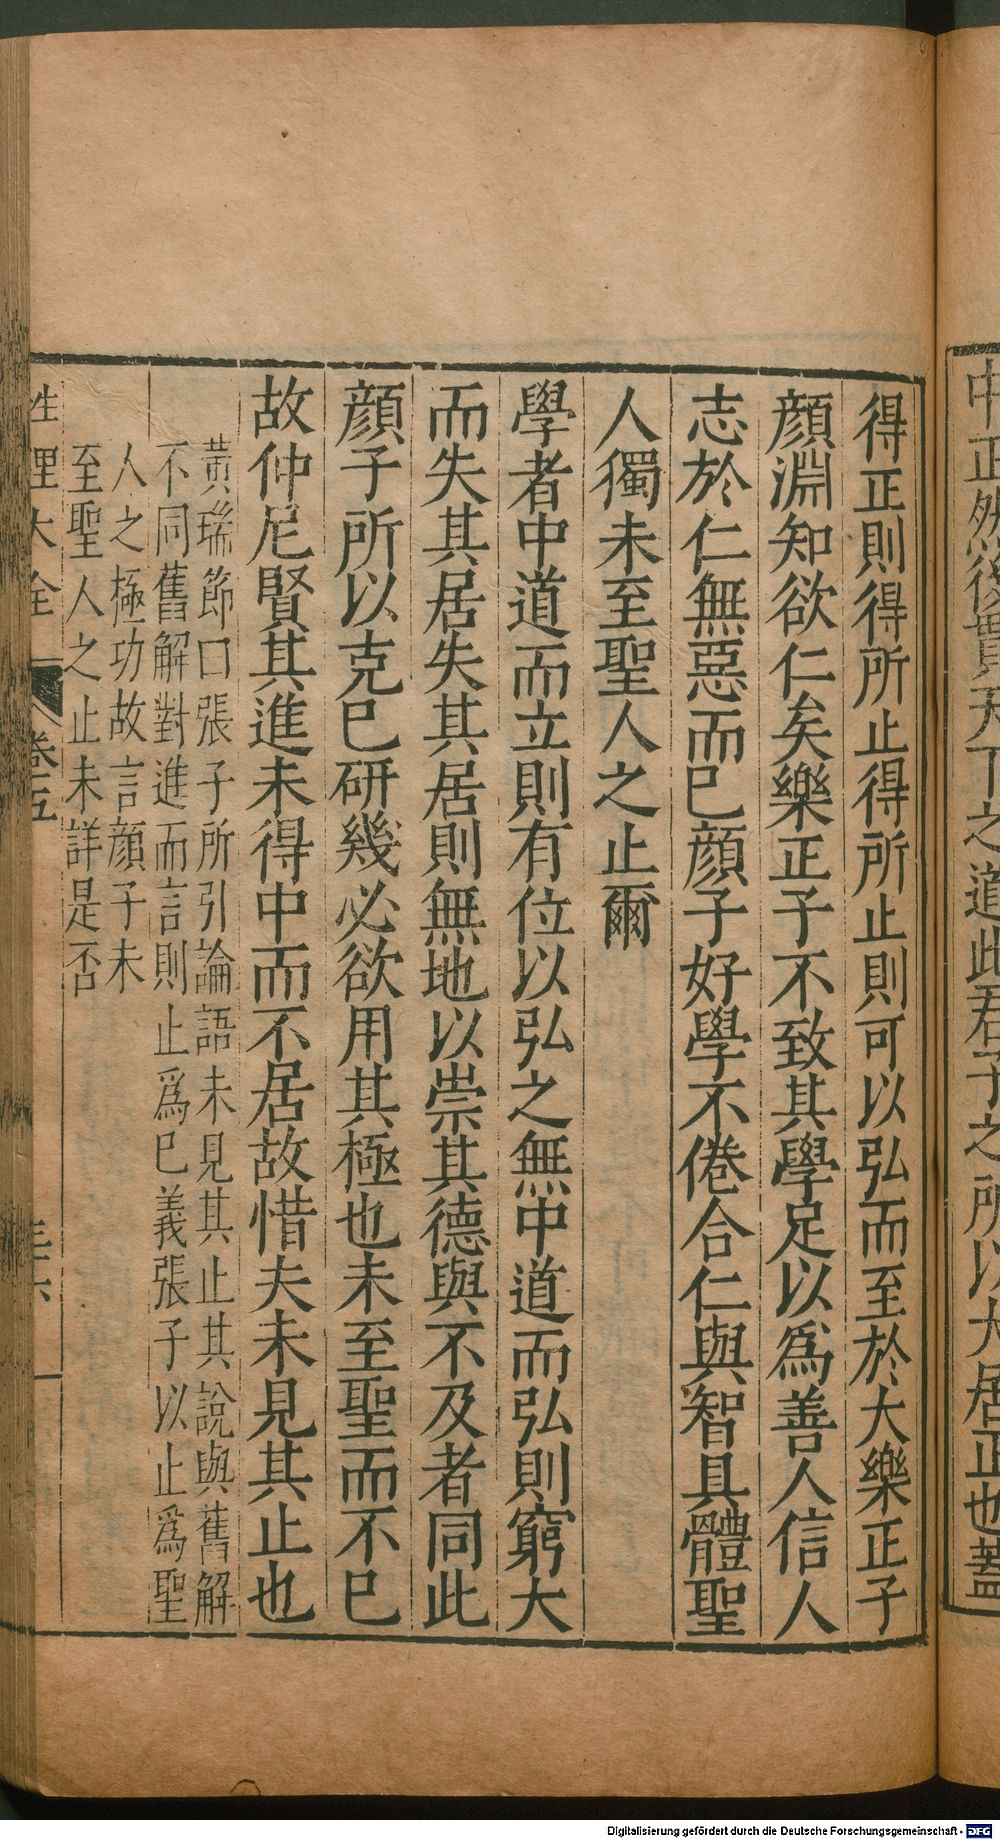 中正然後貫天下之道此君子之所以大居正也蓋
得正則得所止得所止則可以弘而至於大樂正子
顏淵知欲仁矣樂正子不致其學足以為善人信人
志於仁無惡而已顏子好學不倦合仁與智具體聖
人獨未至聖人之止爾
學者中道而立則有位以弘之無中道而弘則窮大
而失其居失其居則無地以崇其德與不及者同此
顏子所以克已研幾必欲用其極也未至聖而不已
故仲尼賢其進未得中而不居故惜夫未見其止也
黃瑞節曰張子所引論語未見其止其說與舊解
不同舊解對進而言則止爲已義張子以止爲聖
人之極功故言顏子未
至聖人之止未詳是否
性理大全 卷五
Digitalisierung gefördert durch die Deutsche Forschungsgemeinschaft - DFG